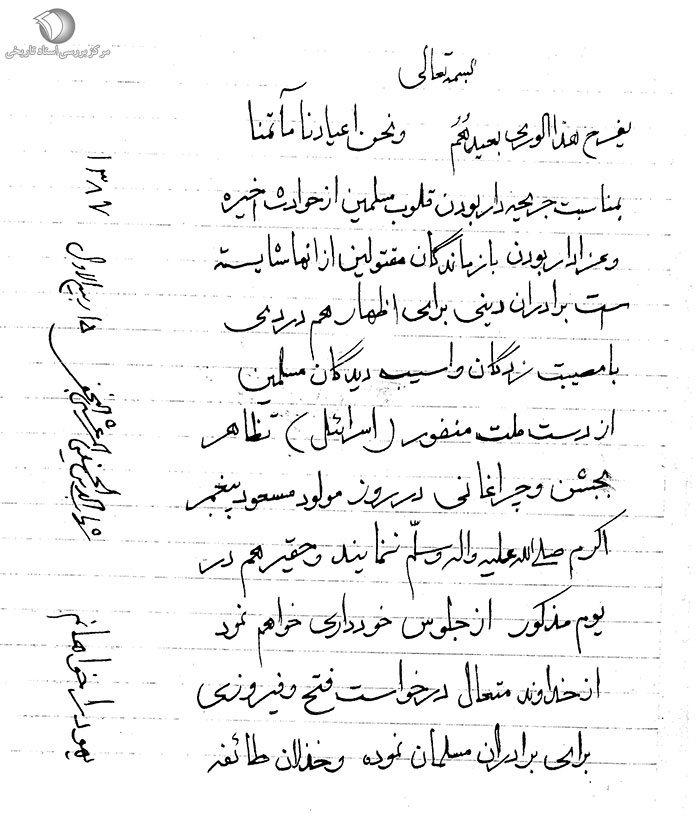 مرکز بررسی اسناد تاریخی
بسمه تعالی
یفرح هذا الوری بعیدهُمُ ونحن اعیادنا مآتمنا
بمناسبت جریحه دار بودن قلوب مسلمین از حوادث اخیره
وعزادار بودن بازماندگان مقتولین از انها شایسته
است برادران دینی برای اظهار هم دردی
با مصیبت زدگان واسیب دیدگان مسلمین
از دست ملت منفور (اسرائیل) تظاهر
بجشن وچراغانی در روز مولود مسعود پیغمبر
اکرم صلی الله علیه واله وسلّم ننمایند وحقیر هم در
یوم مذکور از جلوس خودداری خواهم نمود
از خداوند متعال درخواست فتح وفیروزی
برای برادران مسلمان نموده وخذلان طائفه
یهود را خواهانم
شهاب الدین الحسینی المرعشی النجفی
ربیع الاول
۱۳۸۷